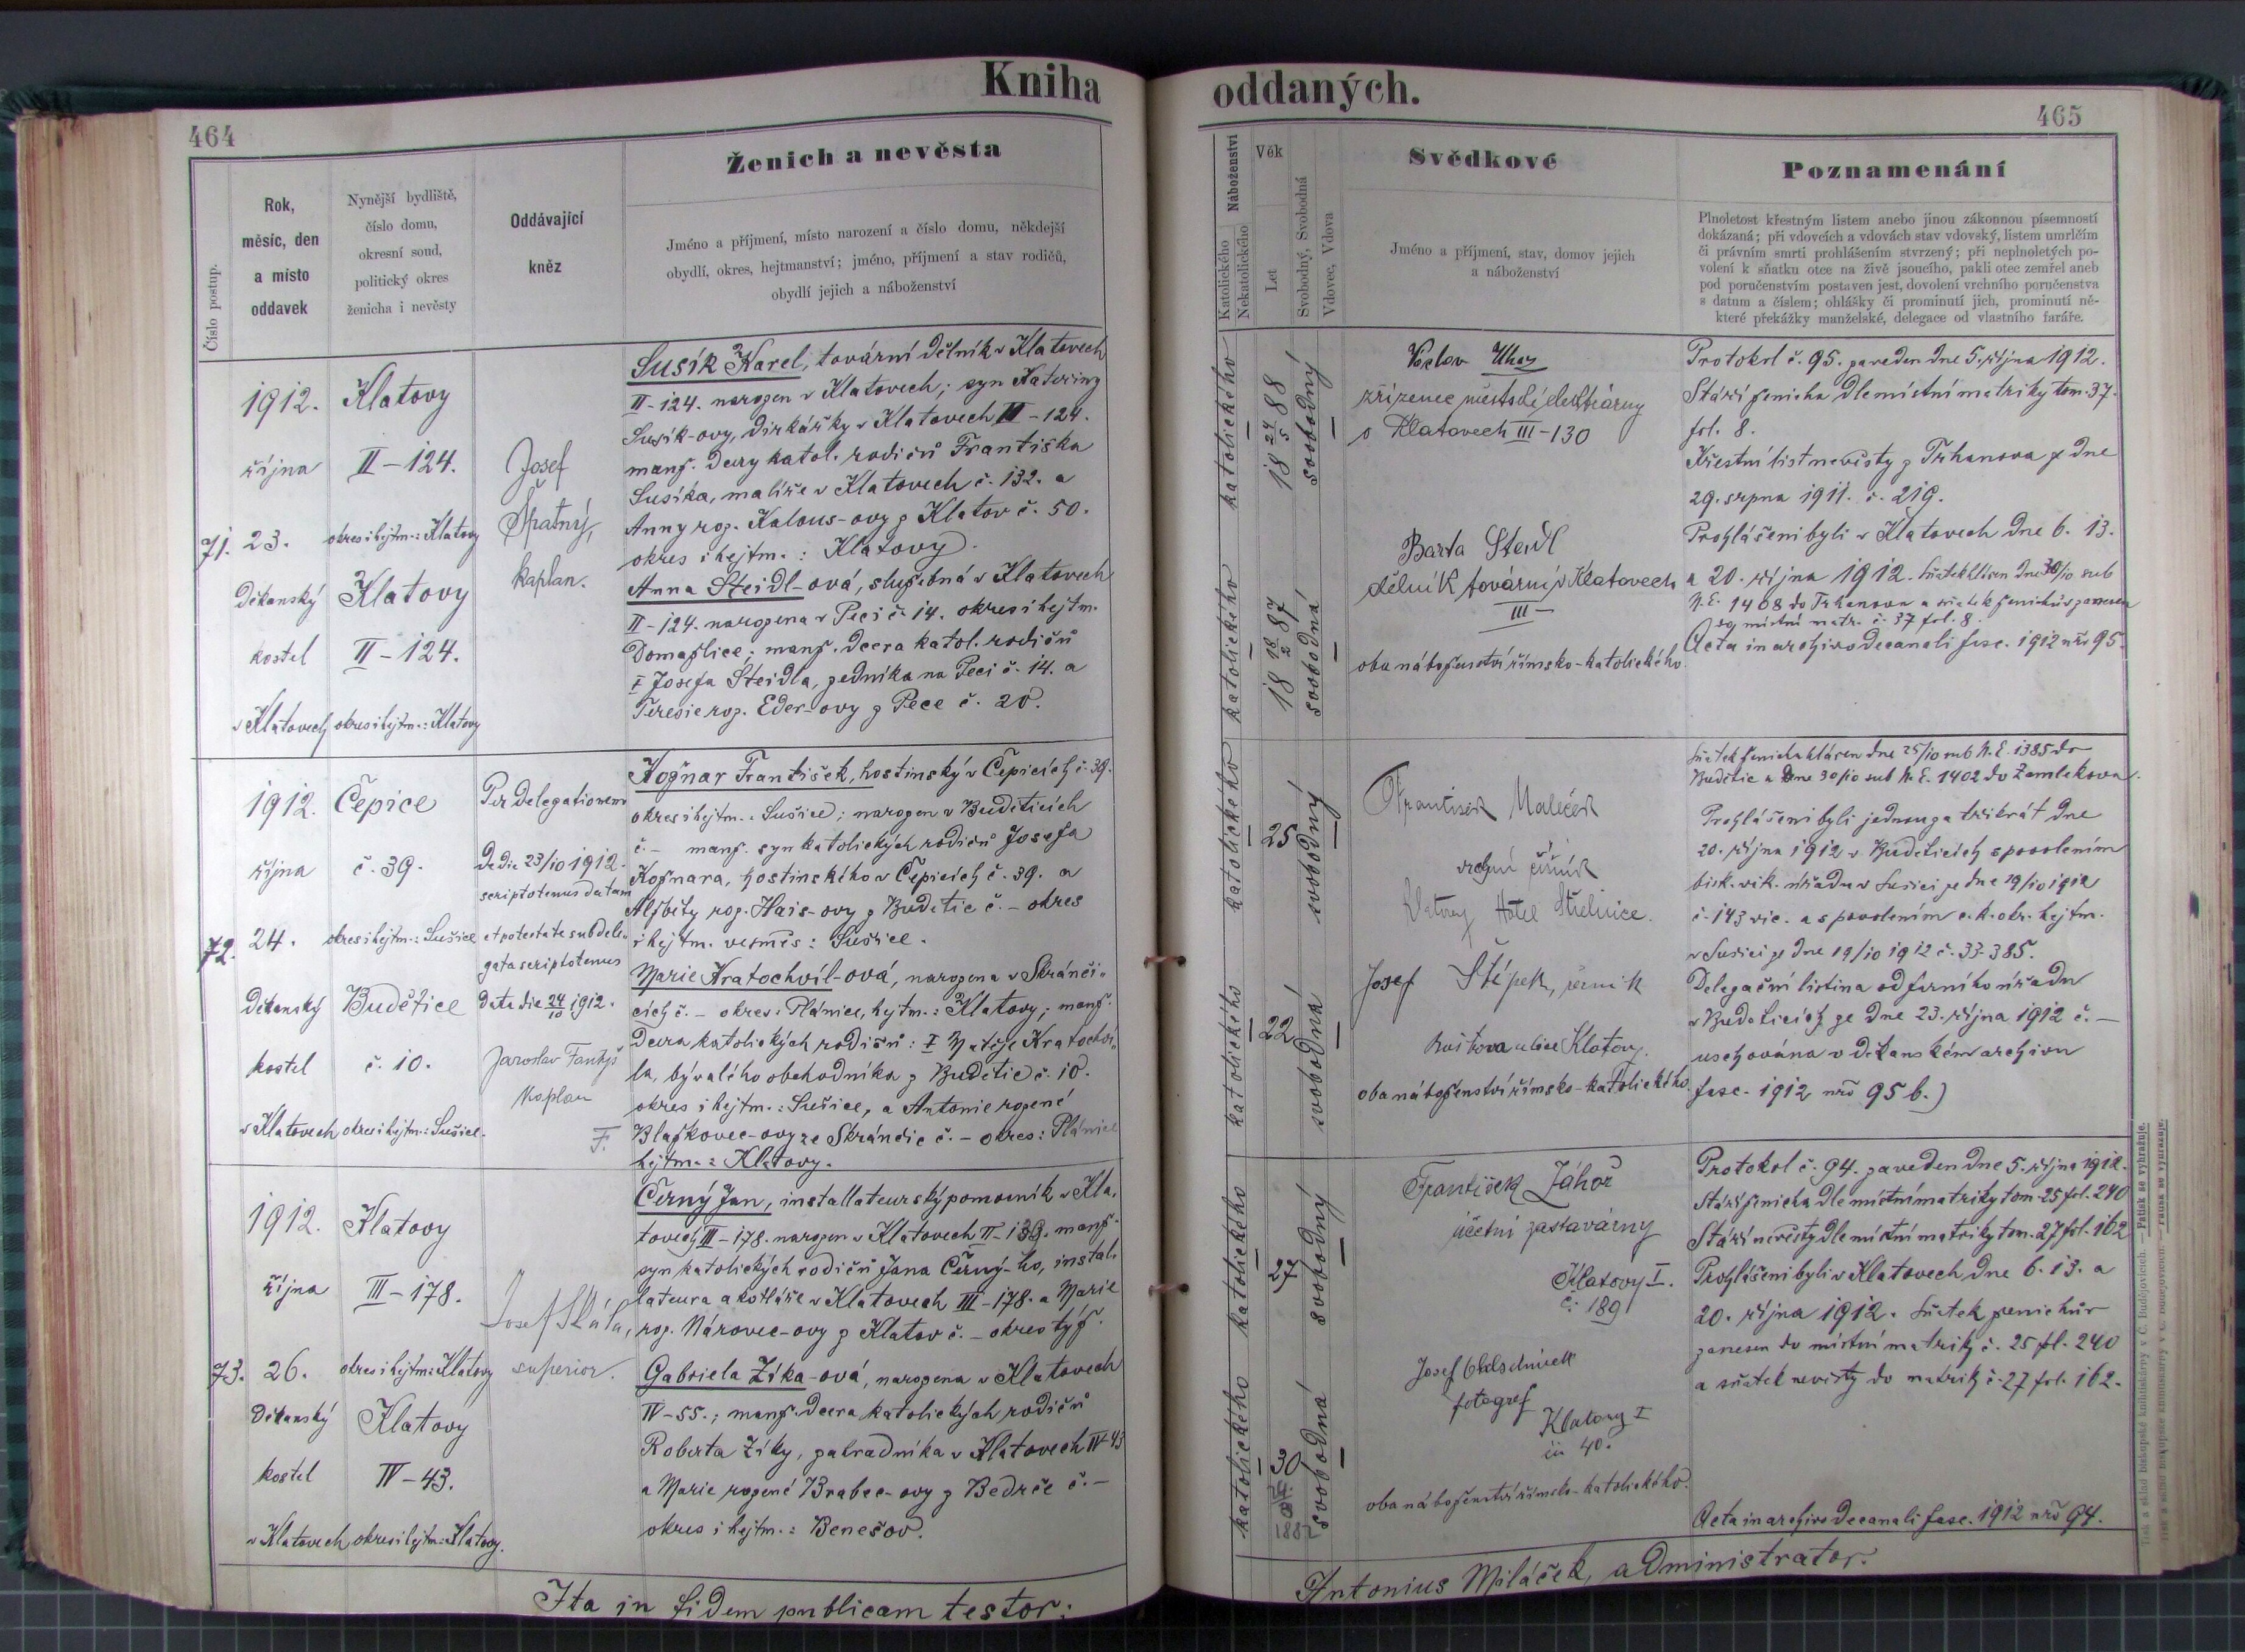 Kniha oddaných.
464
465
Číslo postup.
Rok,
měsíc, den
a místo
oddavek
Nynější bydliště,
číslo domu,
okresní soud,
politický okres
ženicha i nevěsty
Oddávající
kněz
Ženich a nevěsta
Jméno a příjmení, místo narození a číslo domu, někdejší
obydlí, okres, hejtmanství; jméno, příjmení a stav rodičů,
obydlí jejich a náboženství
Náboženství
Katolického
Nekatolického
Věk
Let
Svobodný, Svobodná
Vdovec, Vdova
Svědkové
Jméno a příjmení, stav, domov jejich
a náboženství
Poznamenání
Plnoletost křestným listem anebo jinou zákonnou písemností
dokázaná; při vdovcích a vdovách stav vdovský, listem umrlčím
či právním smrti prohlášením stvrzený; při neplnoletých po-
volení k sňatku otce na živě jsoucího, pakli otec zemřel aneb
pod poručenstvím postaven jest, dovolení vrchního poručenstva
s datum a číslem; ohlášky či prominutí jich, prominutí ně-
které překážky manželské, delegace od vlastního faráře.
71.
1912.
října
23.
Děkanský
kostel
v Klatovech
Klatovy
II-124.
okres i hejtm.: Klatovy
Klatovy
II-124.
okres i hejtm.: Klatovy
Josef
Špatný,
kaplan.
Susík Karel, tovární dělník v Klatovech
II-124. narozen v Klatovech; syn Kateřiny
Susík-ovy, dirkářky v Klatovech III-124.
manž. dcery katol. rodičů Františka
Susíka, malíře v Klatovech č. 132. a
Anny roz. Kalous-ovy z Klatov č. 50.
okres i hejtm.: Klatovy.
Anna Steidl-ová, služebná v Klatovech
II-124. narozena v Peci č. 14. okres i hejtm.
Domažlice; manž. dcera katol. rodičů
‡ Josefa Steidla, zedníka na Peci č. 14. a
Terezie roz. Eder-ovy z Pece č. 20.
katolického
18 24/5 88
svobodný
katolického
18 18/2 87
svobodná
Václav
zřízenec městské elektrárny
v Klatovech III-130
Barta Steidl
dělník tovární v Klatovech
III-
oba náboženství římsko-katolického.
Protokol č. 95. zaveden dne 5. října 1912.
Stáří ženicha dle místní matriky tom. 37.
fol. 8.
Křestní list nevěsty z Trhanova ze dne
29. srpna 1911. č. 219.
Prohlášeni byli v Klatovech dne 6. 13.
a 20. října 1912. Sňatek hlášen dne 30/10 sub
N. E. 1408 do Trhanova a sňatek ženichův zanesen
do místní matr. č. 37 fol. 8.
Acta in archivo decanali fasc. 1912 nro 95.
72.
1912.
října
24.
Děkanský
kostel
v Klatovech
Čepice
č. 39.
okres i hejtm.: Sušice
Budětice
č. 10.
okres i hejtm.: Sušice.
Per delegationem
de die 23/10 1912.
scriptotenus datam
et potestate subdele-
gata scriptotenus
data die 24/10 1912.
Jaroslav
kaplan
F.
Kožnar František, hostinský v Čepicích č. 39.
okres i hejtm.: Sušice; narozen v Buděticích
č. - manž. syn katolických rodičů Josefa
Kožnara, hostinského v Čepicích č. 39. a
Alžběty roz. Hais-ovy z Budětic č. - okres
i hejtm. vesměs: Sušice.
Marie Kratochvíl-ová, narozena v Skránči-
cích č. - okres: Plánice, hejtm.: Klatovy; manž.
dcera katolických rodičů: ‡ Matěje Kratochví-
la, bývalého obchodníka z Budětic č. 10.
okres i hejtm.: Sušice, a Antonie rozené
Blažkovec-ovy ze Skránčic č. - okres: Plánice
hejtm.: Klatovy.
katolického
25
svobodný
katolického
22
svobodná
František Maleček
vrchní číšník
Klatovy Hotel Střelnice.
Josef Štípek, řezník
ulice Klatovy.
oba náboženství římsko-katolického.
Sňatek ženicha hlášen dne 25/10 sub N. E. 1385 do
Budětic a dne 30/10 sub N. E. 1402 do Zamlekova.
Prohlášeni byli jednou za třikrát dne
20. října 1912 v Buděticích s povolením
bisk. vik. úřadu v Sušici ze dne 19/10 1912
č. 143 vic. a s povolením c. k. okr. hejtm.
v Sušici ze dne 19/10 1912 č. 33-385.
Delegační listina od farního úřadu
v Buděticích ze dne 23. října 1912 č. -
uschována v děkanském archivu
fasc. 1912 nro 95 b.)
73.
1912.
října
26.
Děkanský
kostel
v Klatovech
Klatovy
III-178.
okres i hejtm.: Klatovy
Klatovy
IV-43.
okres i hejtm.: Klatovy.
Josef Skála,
superior.
Černý Jan, installateurský pomocník v Kla-
tovech III-178. narozen v Klatovech II-139. manž.
syn katolických rodičů Jana Černý-ho, instal-
lateura a kotláře v Klatovech III-178. a Marie
roz. Nárovec-ovy z Klatov č. - okres týž.
Gabriela Zíka-ová, narozena v Klatovech
IV-55.; manž. dcera katolických rodičů
Roberta Zíky, zahradníka v Klatovech IV-43
a Marie rozené Brabec-ovy z Bedrče č. -
okres i hejtm.: Benešov.
katolického
27
svobodný
katolického
30
24./8 1882
svobodná
František Záhoř
účetní zastavárny
Klatovy I.
č. 189
Josef
fotograf
Klatovy I
čís 40.
oba náboženství římsko-katolického.
Protokol č. 94. zaveden dne 5. října 1912.
Stáří ženicha dle místní matriky tom. 25 fol. 240
Stáří nevěsty dle místní matriky tom. 27 fol. 162
Prohlášeni byli v Klatovech dne 6. 13. a
20. října 1912. Sňatek ženichův
zanesen do místní matriky č. 25 fol. 240
a sňatek nevěsty do matriky č. 27 fol. 162.
Acta in archivo decanali fasc. 1912 nro 94.
Ita in fidem publicam testor:
Antonius Miláček, administrator.
Tisk a sklad biskupské knihtiskárny v Č. Budějovicích. — Patisk se vyhražuje.